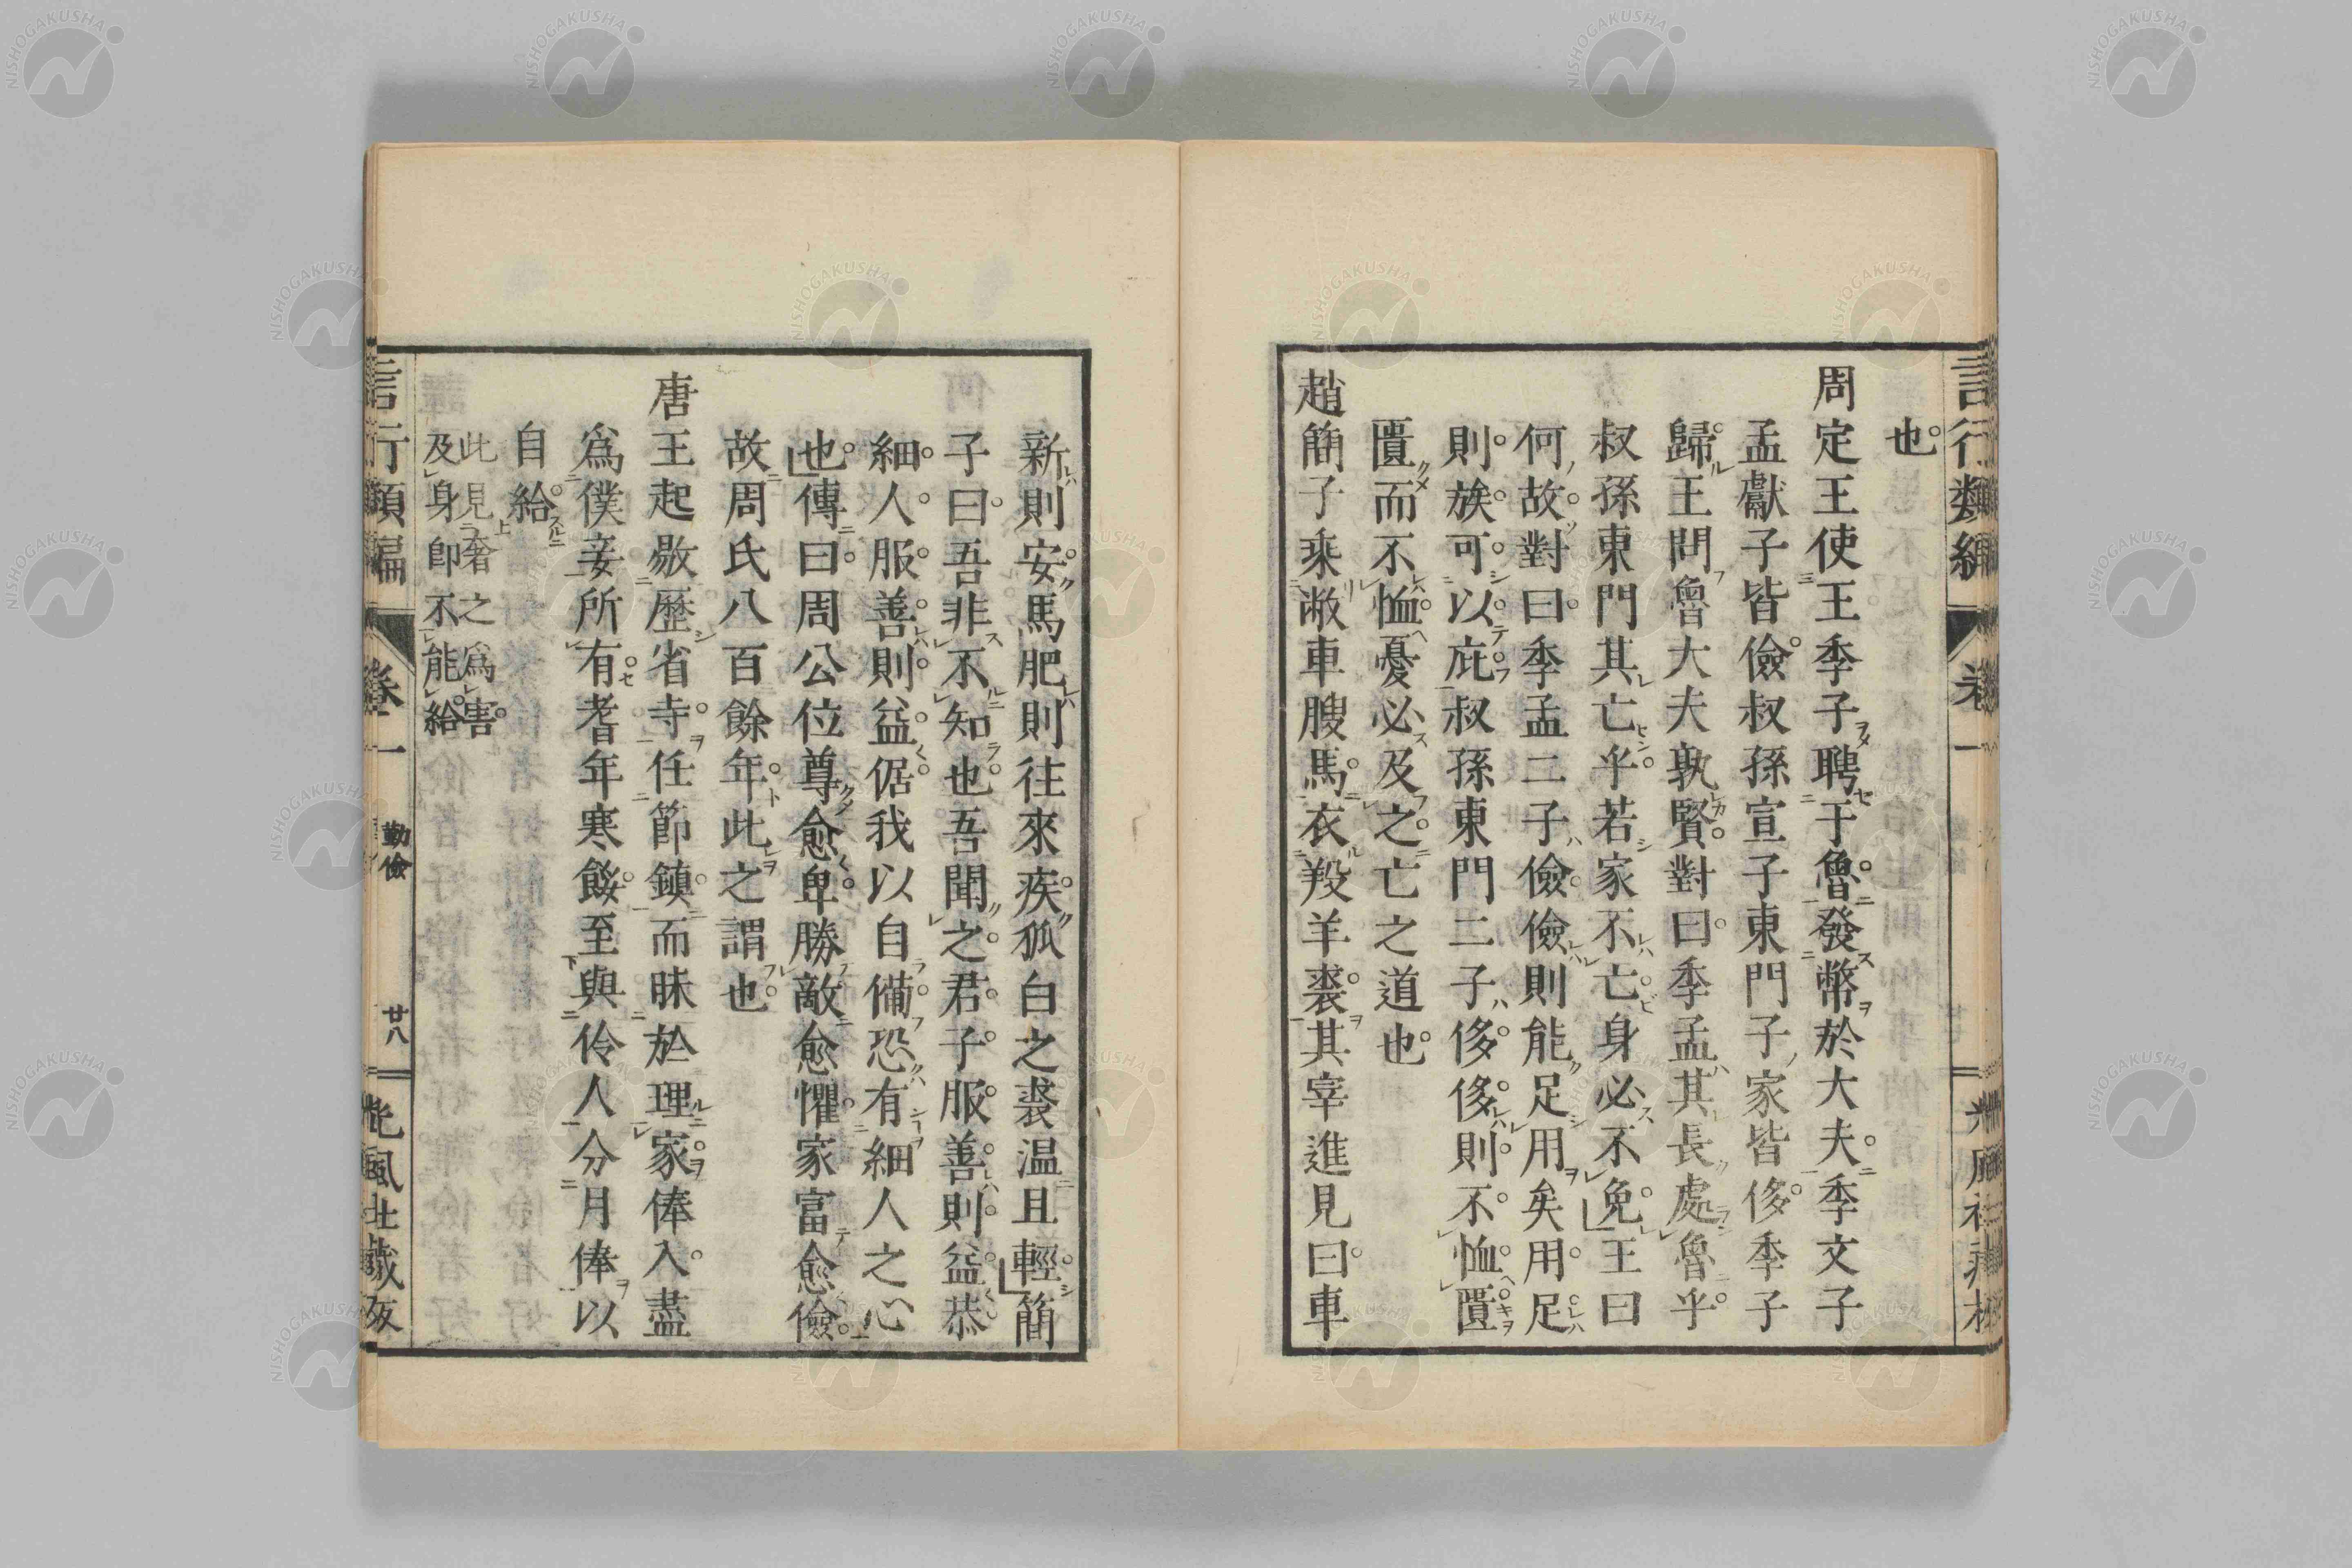 言行類編 卷一
也
周定王使王季子聘于魯發幣於大夫季文子
孟獻子皆儉叔孫宣子東門子家皆侈季子
歸王問魯大夫孰賢對曰季孟其長處魯乎
叔孫東門其亡乎若家不亡身必不免王曰
何故對曰季孟二子儉儉則能足用矣用足
則族可以庇叔孫東門二子侈侈則不恤匱
匱而不恤憂必及之亡之道也
趙簡子乘敝車瘦馬衣羖羊裘其宰進見曰車
新則安馬肥則往來疾狐白之裘温且輕簡
子曰吾非不知也吾聞之君子服善則益恭
細人服善則益倨我以自備恐有細人之心
也傳曰周公位尊愈卑勝敵愈懼家富愈儉
故周氏八百餘年此之謂也
唐王起敭歷省寺任節鎮而昧於理家俸入盡
爲僕妾所有耆年寒餒至與伶人分月俸以
自給
此見奢之爲害
及身卽不能給
言行類編 卷一 勤儉 廿八
NISHOGAKUSHA